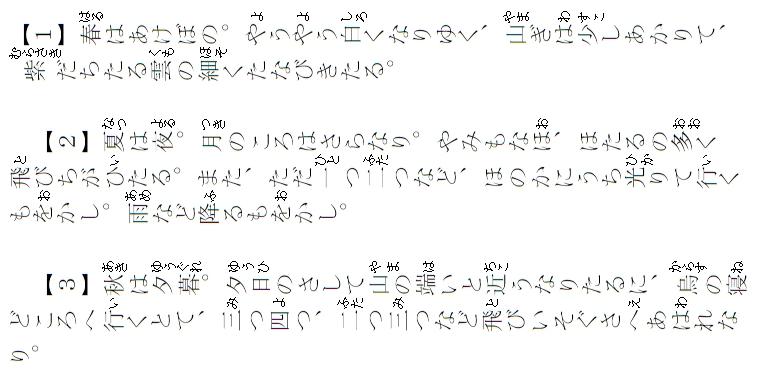 はる よ よ しろ やま わ すこ
【1】春はあけぼの。やうやう白くなりゆく、山ぎは少しあかりて、
むらさき くも ほそ
紫だちたる雲の細くたなびきたる。
なつ よる つき お おお
【2】夏は夜。月のころはさらなり。やみもなほ、ほたるの多く
と い ひと ふた ひか い
飛びちがひたる。また、ただ一つ二つなど、ほのかにうち光りて行く
お あめ ふ お
もをかし。雨など降るもをかし。
あき ゆうぐれ ゆうひ やま は ちこ からす ね
【3】秋は夕暮。夕日のさして山の端いと近うなりたるに、烏の寝
い み よ ふた み と え わ
どころへ行くとて、三つ四つ、二つ三つなど飛びいそぐさへあはれな
り。